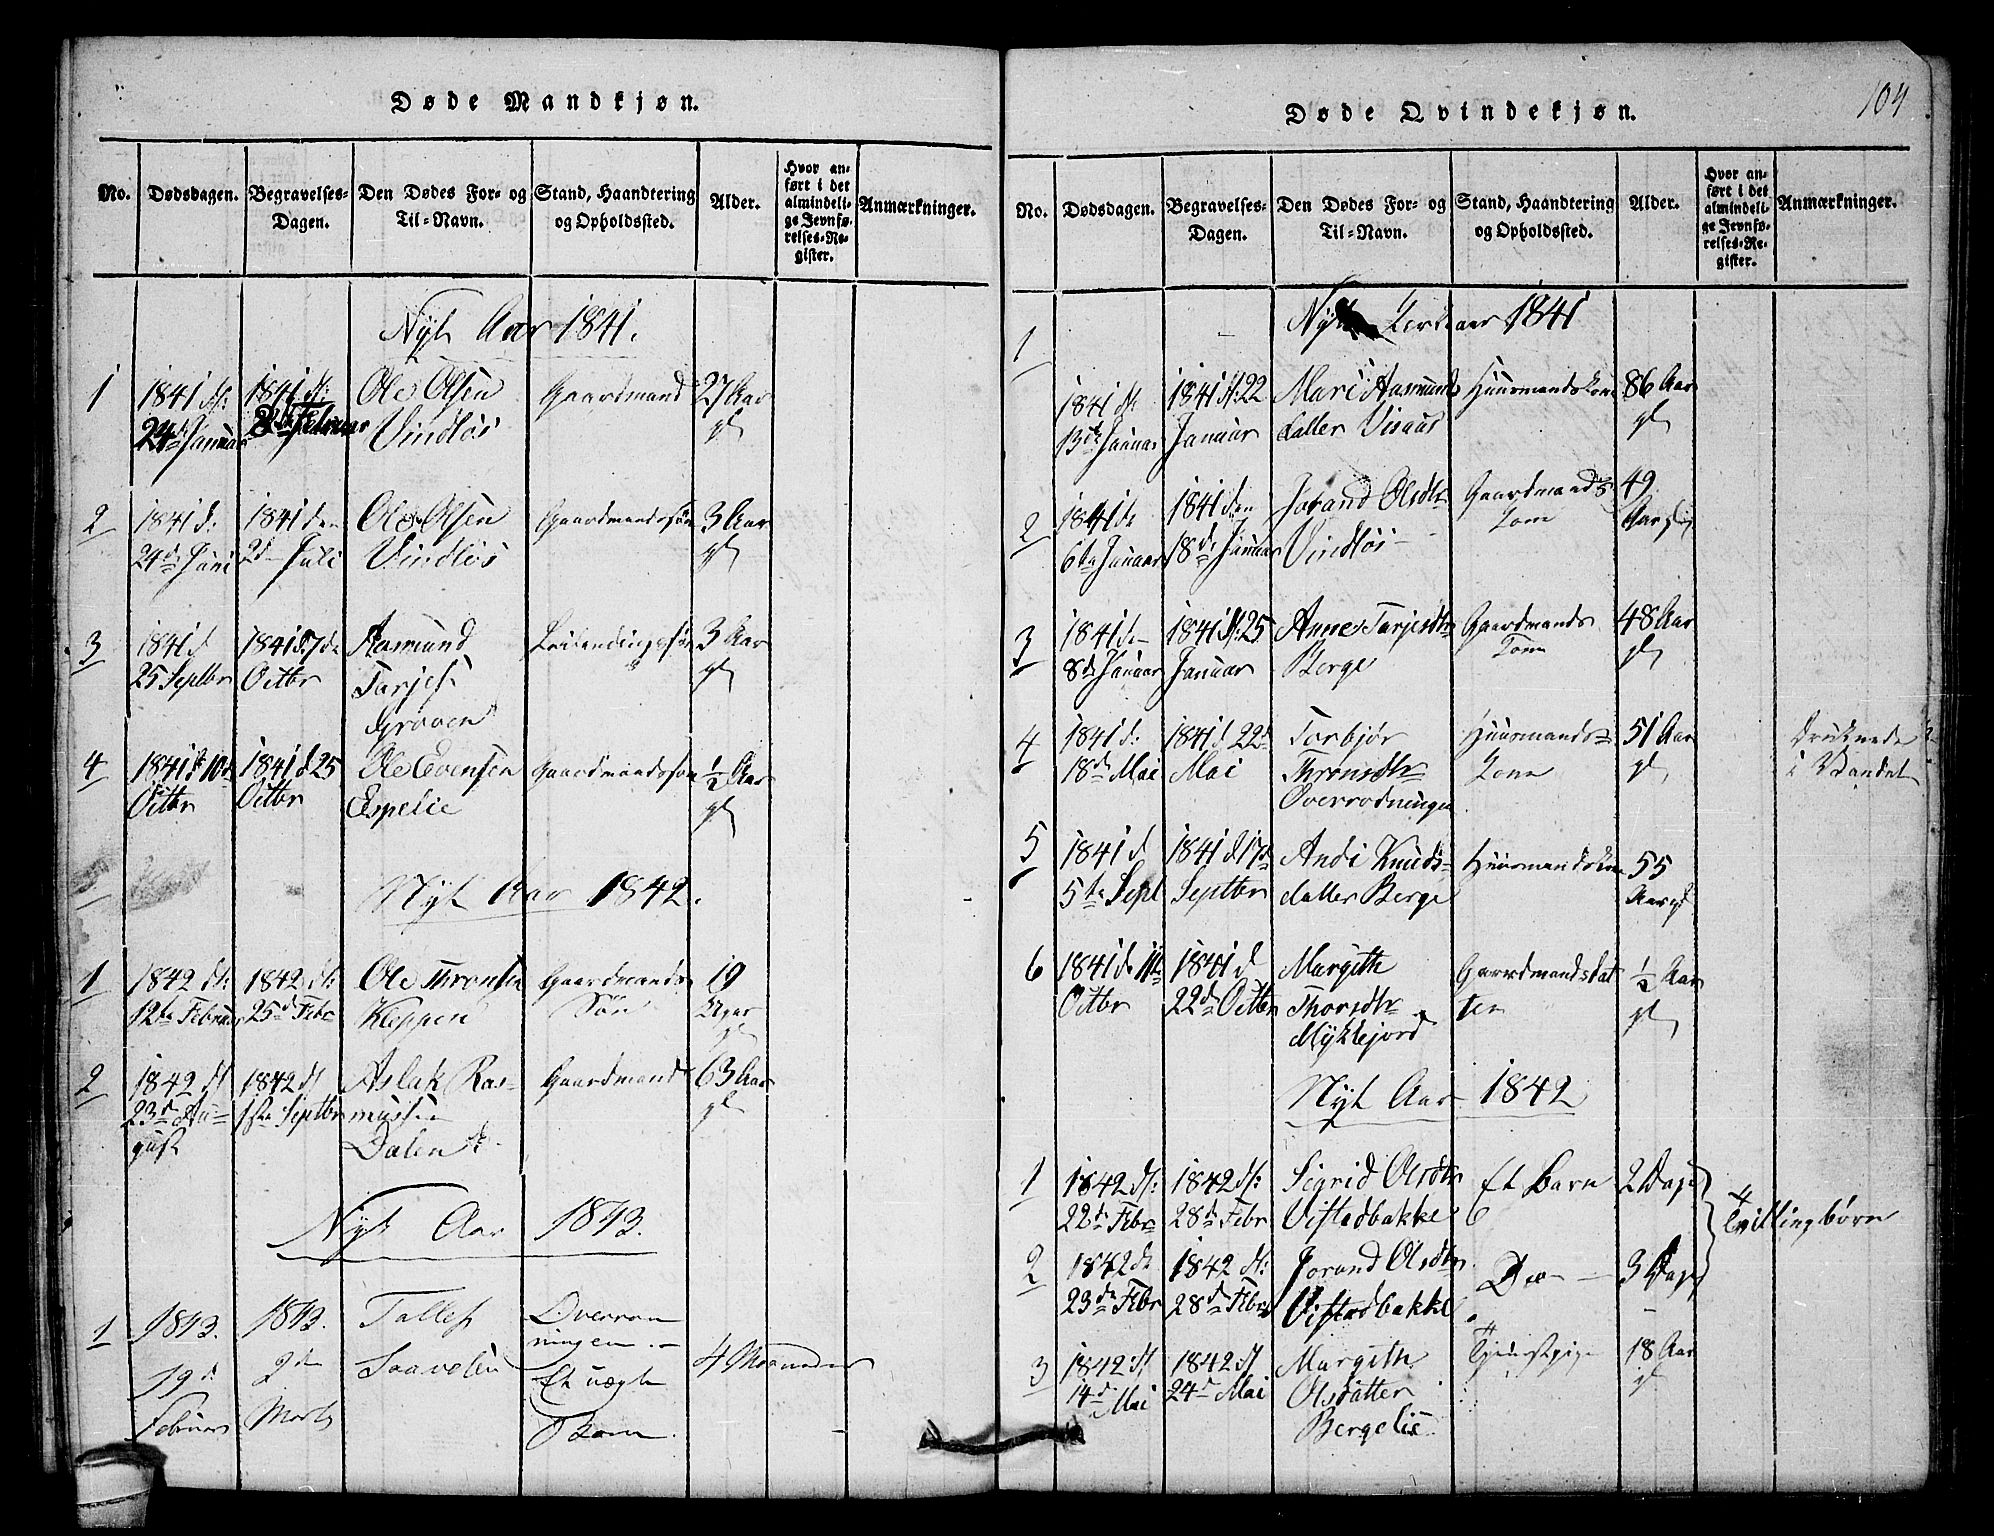 Døde Mandkjøn.
No.
Dødsdagen.
Begravelses-
Dagen.
Den Dødes For- og
Til-Navn.
Stand, Haandtering
og Opholdssted.
Alder.
Hvor an-
ført i det
almindeli-
ge Jevnfø-
relses-Re-
gister.
Anmærkninger.
Nyt Aar 1841.
1
1841 d:
24de Januar
1841 d:
Februar
Ole Olsen
Vindlös
Gaardmand
27 Aar
gl
2
1841 d:
24de Juni
1841 den
2d Juli
Ole Olsen
Vindlös
Gaardmandssøn
3 Aar
gl
3
1841 d
25 Septbr
1841 d 7de
Octbr
Aasmund
Tarjes
Groven
3 Aar
gl
4
1841 d 10de
Octbr
1841 d 25
Octbr
Ole Evensen
Espelie
Gaardmandssøn
½ Aar
gl
Nyt Aar 1842.
1
1842 d:
12te Februar
1842 d:
25d Febr
Ole Thronsen
Kleppen
Gaardmands
Søn
19
Aar
gl
2
1842 d
23d Au-
gust
1842 d
1ste Septbr
Aslak Ras-
mussen
Dalen
Gaardmand
63 Aar
gl
Nyt Aar 1843.
1
1843.
19d
Februar
1843.
2den
Marts
Tallef
Overron
ningen.
Et uægte
Barn.
4 Maaneder
104
Døde Qvindekjøn.
No.
Dødsdagen.
Begravelses-
Dagen.
Den Dødes For- og
Til-Navn.
Stand, Haandtering
og Opholdssted.
Alder.
Hvor an-
ført i det
almindeli-
ge Jevnfø-
relses-Re-
gister.
Anmærkninger.
Nyt Kirkeaar 1841
1
1841 d:
13de Januar
1841 d: 22
Januar
Mari Aasmunds
datter Visaus
Huusmandskone
86 Aar
gl
2
1841 de
6te Januar
1841 den
18de Januar
Jorand Olsdtr
Vindlös
Gaardmands
Kone
49
Aar gl
3
1841 d
8d Januar
1841 d: 25
Januar
Anne Tarjesdtr
Berge
Gaardmands
Kone
48 Aar
gl
4
1841 d:
18de Mai
1841 d 22d
Mai
Torbjør
Thronsdtr
Overrodningen
Huusmands-
Kone
51 Aar
gl
Druknede
i Vandet
5
1841 d
5te Sept
1841 d 17de
Septbr
Andi Knuds-
datter Berge
Huusmandskone
55
Aar gl
6
1841 d 11te
Octbr
1841 d
22de Octbr
Margith
Thorsdtr
Myklejord
Gaardmandsdat
ter
½ Aar
gl
Nyt Aar 1842
1
1842 d:
22de Febr
1842 d:
28de Febr
Sigrid Olsdtr
Vistadbakke
Et Barn
2 Dage
Tvillingbørn
2
1842 d
23de Febr
1842 d:
28de Febr
Jorand Olsdtr
Vistadbakke
Do
3 Dage
3
1842 d
14de Mai
1842 d
24de Mai
Margith
Olsdatter
Bergelie
Tjenestpige
18 Aar
gl